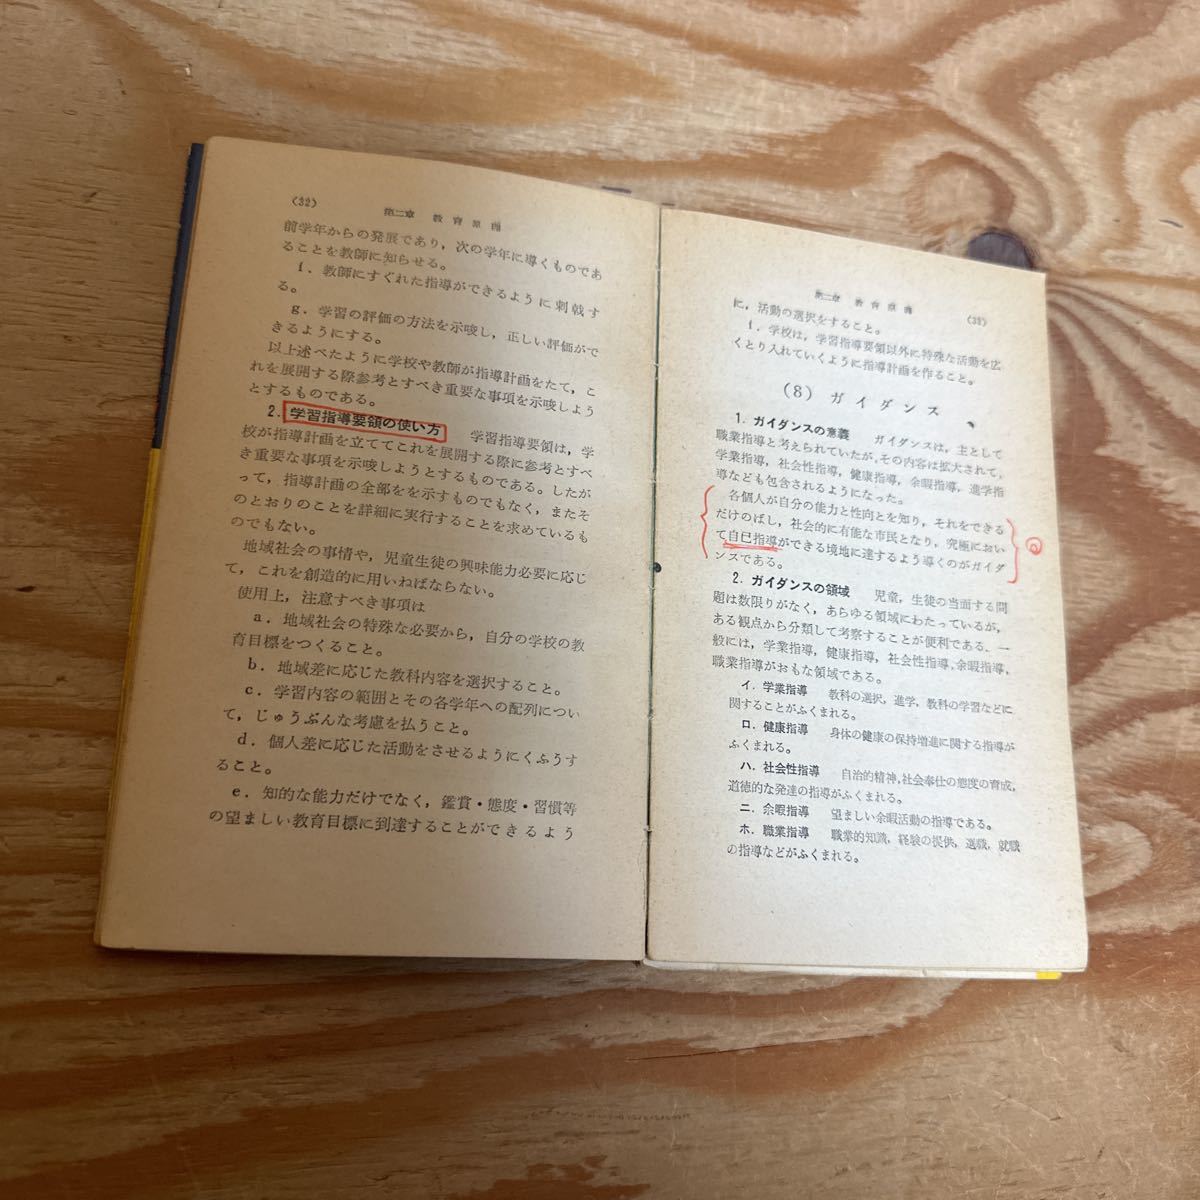 (32)
第二章　教育原理
前学年からの発展であり，次の学年に導くものであ
ることを教師に知らせる。
f．教師にすぐれた指導ができるように刺戟す
る。
g．学習の評価の方法を示唆し，正しい評価がで
きるようにする。
以上述べたように学校や教師が指導計画をたて，こ
れを展開する際参考とすべき重要な事項を示唆しよう
とするものである。
2．学習指導要領の使い方　学習指導要領は，学
校が指導計画を立ててこれを展開する際に参考とすべ
き重要な事項を示唆しようとするものである。したが
って，指導計画の全部をを示すものでもなく，またそ
のとおりのことを詳細に実行することを求めているも
のでもない。
地域社会の事情や，児童生徒の興味能力必要に応じ
て，これを創造的に用いねばならない。
使用上，注意すべき事項は
a．地域社会の特殊な必要から，自分の学校の教
育目標をつくること。
b．地域差に応じた教科内容を選択すること。
c．学習内容の範囲とその各学年への配列につい
て，じゅうぶんな考慮を払うこと。
d．個人差に応じた活動をさせるようにくふうす
ること。
e．知的な能力だけでなく，鑑賞・態度・習慣等
の望ましい教育目標に到達することができるよう
第二章　教育原理
(33)
に，活動の選択をすること。
f．学校は，学習指導要領以外に特殊な活動を広
くとり入れていくように指導計画を作ること。
(8) ガイダンス
1．ガイダンスの意義　ガイダンスは，主として
職業指導と考えられていたが，その内容は拡大されて，
学業指導，社会性指導，健康指導，余暇指導，進学指
導なども包含されるようになった。
各個人が自分の能力と性向とを知り，それをできる
だけのばし，社会的に有能な市民となり，究極におい
て自己指導ができる境地に達するよう導くのがガイダ
ンスである。
2．ガイダンスの領域　児童，生徒の当面する問
題は数限りがなく，あらゆる領域にわたっているが，
ある観点から分類して考察することが便利である。一
般には，学業指導，健康指導，社会性指導，余暇指導，
職業指導がおもな領域である。
イ．学業指導　教科の選択，進学，教科の学習などに
関することがふくまれる。
ロ．健康指導　身体の健康の保持増進に関する指導が
ふくまれる。
ハ．社会性指導　自治的精神，社会奉仕の態度の育成，
道徳的な発達の指導がふくまれる。
ニ．余暇指導　望ましい余暇活動の指導である。
ホ．職業指導　職業的知識，経験の提供，選職，就職
の指導などがふくまれる。